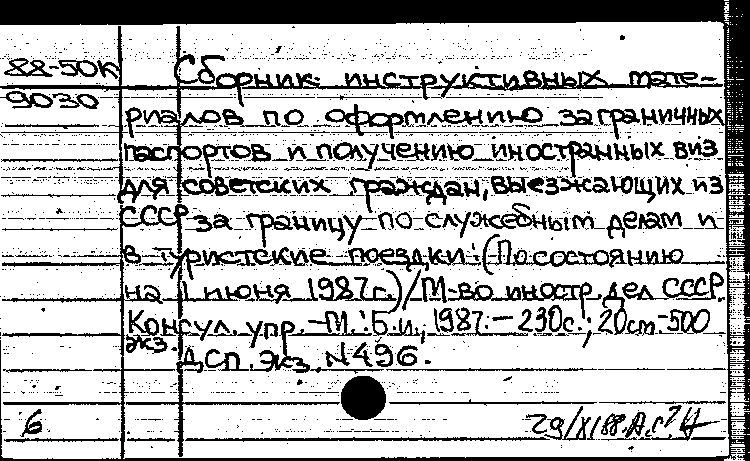 88-50К Сборник инструктивных мате-
9030 риалов по оформлению заграничных
паспортов и получению иностранных виз
для советских граждан, выезжающих из
СССР за границу по служебным делам и
в туристские поездки: (По состоянию
на 1 июня 1987г.)/М-во иностр. дел СССР.
Консул. упр.-М.: Б.и., 1987.- 230с.; 20см.-500
экз. Д.сп. Экз. N496.
6 29/XI 88.